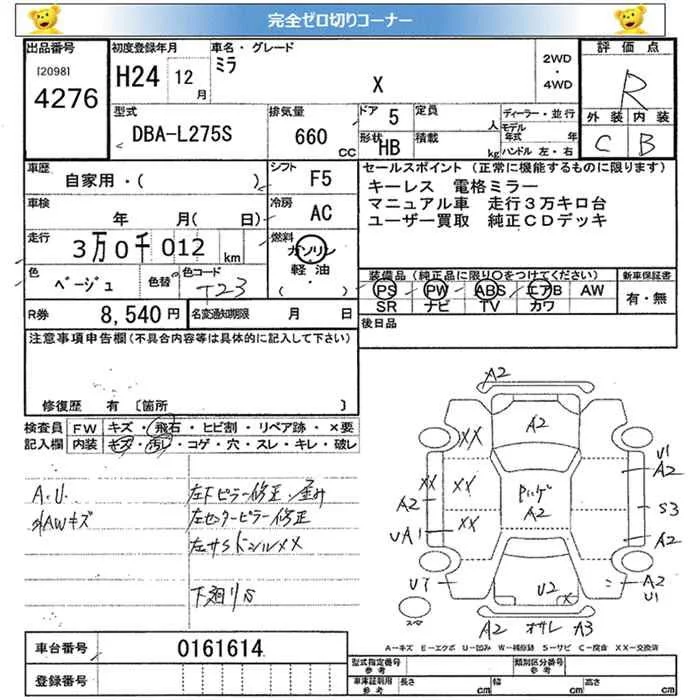 完全ゼロ切りコーナー
出品番号
[2098]
4276
初度登録年月
H24 12月
車名・グレード
ミラ
X
2WD
・
4WD
評価点
R
外装 内装
C B
型式
DBA-L275S
排気量
660 CC
ドア 5
形状 HB
定員 人
積載 kg
ディーラー・並行
モデル年式 年
ハンドル 左・右
車歴
自家用・( )
シフト F5
車検
年 月( 日)
冷房 AC
走行
3万0千012 km
燃料
ガソリン
軽・油
・( )
色
ベージュ
色替
色コード
T23
セールスポイント (正常に機能するものに限ります)
キーレス 電格ミラー
マニュアル車 走行3万キロ台
ユーザー買取 純正CDデッキ
装備品(純正品に限り○をつけてください)
PS PW ABS エアB AW
SR ナビ TV カワ
新車保証書
有・無
R券 8,540円
名変通知期限 月 日
後日品
注意事項申告欄(不具合内容等は具体的に記入して下さい)
修復歴 有 〔箇所 〕
検査員 FW キズ・飛石・ヒビ割・リペア跡・×要
記入欄 内装 キズ・汚レ・コゲ・穴・スレ・キレ・破レ
A.U.
左Fピラー修正・歪み
外AWキズ
左センターピラー修正
下廻りS
A2
A2
XX
XX
XX
XX
A2
UA1
A2
U1
A2
S3
A2
U2
X
A2
U1
A2 オサレ A3
スペア
A－キズ E－エクボ U－凹み W－補修跡 S－サビ C－腐食 XX－交換済
車台番号 0161614
登録番号
型式指定番号 参考
類別区分番号 参考
車庫証明用 参考
長さ cm
幅 cm
高さ cm